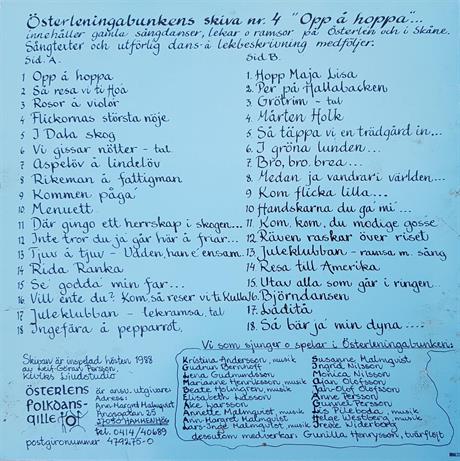 Österleningabunkens skiva nr. 4 "Opp å hoppa"...
innehåller gamla sångdanser, lekar o ramsor på Österlen och i Skåne.
Sångtexter och utförlig dans-å lekbeskrivning medföljer.
Sid. A.
1 Opp å hoppa
2 Så resa vi ti Höa
3 Rosor å violor
4 Flickornas största nöje
5 I Dala skog
6 Vi gissar nötter - tal
7 Aspelöv å lindelöv
8 Rikeman å fattigman
9 Kommen påga´
10 Menuett
11 Där gingo ett herrskap i skogen...
12 Inte tror du jag går här å friar...
13 Tjuv å tjuv - Vaden, han e´ensam.
14 Rida Ranka
15 Se´ godda´ min far...
16 Vill ente du? Kom, så reser vi ti Kulla
17 Juleklubban - lekramsa, tal
18 Ingefära å pepparrot.
Sid B.
1. Hopp Maja Lisa
2. Per på Hallabacken
3. Grötrim - tal
4. Mårten Holk
5 Så täppa vi en trädgård in...
6. I gröna lunden...
7. Bro, bro, brea...
8. Medan ja vandrar i världen...
9 Kom flicka lilla...
10 Handskarna du ga´mi´...
11 Kom, kom, du modige gosse
12 Räven raskar över riset
13 Juleklubban - ramsa m. sång
14 Resa till Amerika
15 Utav alla som går i ringen...
16. Björndansen
17. Ladita
18. Så bär ja´ min dyna....
Skivan är inspelad hösten 1988
av Leif-Göran Persson,
Kiviks Ljudstudio
ÖSTERLENS
FOLKDANS-
GILLE
är ansv. utgivare
Adress:
Ann-Margret Malmquist
Ansgatan 25
27050 HAMMENHÖG
tel. 0414/40689
postgironummer 479275-0
Vi som sjunger o spelar i Österleningabunken:
Kristina Andersson, musik
Gudrun Bernhoff
Lena Gudmundsson
Marianne Henriksson, musik
Beate Holmgren, musik
Elisabeth Larsson
Åke Larsson
Annette Malmquist, musik
Ann-Margret Malmquist
Lars-Inge Malmquist, musik
Susanne Malmquist
Ingrid Nilsson
Monica Nilsson
Ajan Olofsson
Jan-Olof Olofsson
Anne Persson
Gunnel Persson
Les Pileboda, musik
Helge Westberg, musik
Irene Widerberg
dessutom medverkar: Gunilla Henrysson, tvärflöjt